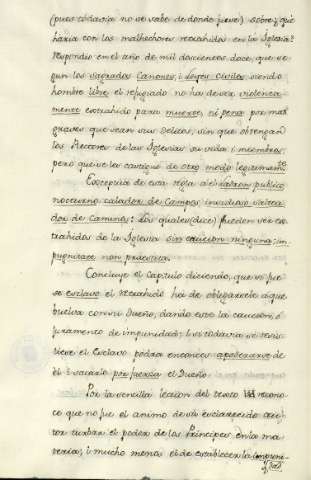 (pues todavia no se sabe de donde fuese) sobre q̃ que
haria con los malhechores retrahidos en la Iglesia?
respondio en el año de mil doscientos doce, que se-
gun los sagrados Canones, i Leyes Civiles siendo
hombre libre el refugiado no ha de ser violenta-
mente extrahido para muerte, ni pena por mas
graves que sean sus delitos, sin que obtengan
los Rectores de las Iglesias su vida i miembros,
pero que se le castigue de otro modo legitimamte
Exceptua de esta regla a el Ladron publico
nocturno talador de Campos insidioso saltea-
dor de Caminos: Los quales (dice) pueden ser ex-
trahidos de la Iglesia sin caucion ninguna: im-
punitate non præstita.
Concluye el Capitulo diciendo, que si fue-
se esclavo el retrahido ha de obligarsele a que
buelva con su Dueño, dando este la caucion, ó
juramento de impunidad; i si todavia se resis-
tiere el Esclavo podra entonces apoderarse de
él i sacarlo por fuerza el Dueño.
Por la sencilla leccion del texto recono-
ce que no fue el animo de su esclarecido au-
tor turbar el poder de los Principes en la ma-
teria; i mucho menos el de establecer la impuni-
dad